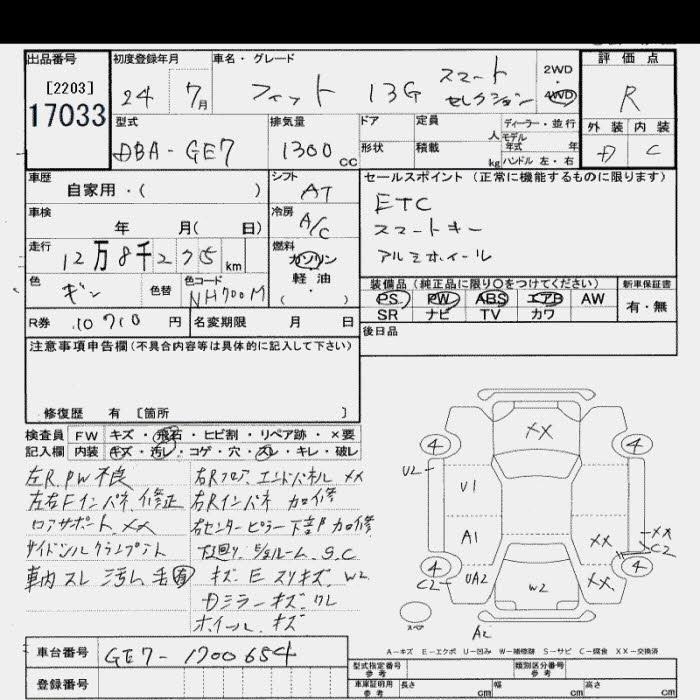 出品番号 [2203] 17033
初度登録年月 24 7月
車名・グレード フィット 13G スマート セレクション
2WD・4WD
評価点 R
外装 内装 C
型式 DBA-GE7
排気量 1300cc
ドア 定員 人
形状 積載 kg
ディーラー・並行
モデル年式 年
ハンドル 左・右
車歴 自家用・( )
シフト AT
車検 年 月( 日)
冷房 A/C
走行 12万8千275km
燃料 ガソリン 軽油 ( ・ )
色 ギン 色替 色コード NH700M
R券 10710円 名変期限 月 日
セールスポイント (正常に機能するものに限ります)
ETC
スマートキー
アルミホイール
装備品 (純正品に限り○をつけてください)
PS PW ABS エアB AW
SR ナビ TV カワ
新車保証書 有・無
後日品
注意事項申告欄(不具合内容等は具体的に記入して下さい)
修復歴 有 [箇所 ]
検査員 FW キズ・飛石・ヒビ割・リペア跡・×要
記入欄 内装 キズ・汚レ・コゲ・穴・スレ・キレ・破レ
左R.PW不良
左右Fインパネ.修正
ロアサポート.XX
車内 スレ 汚レ 毛有
右Rフロア.エンドパネル XX
右Rインパネ 加修
右センターピラー下部加修
下廻り. ルーム.S.C
キズ.E スリキズ.W2
Dミラーキズ.ワレ
ホイール.キズ
XX
4 4
U2
U1
A1
XX
XX C2
4 4
C2 UA2 XX
W2
スペア
A2
A-キズ E-エクボ U-凹み W-補修跡 S-サビ C-腐食 XX-交換済
車台番号 GE7-1700654
登録番号
型式指定番号 参考 類別区分番号 参考
車庫証明用 参考 長さ cm 幅 cm 高さ cm